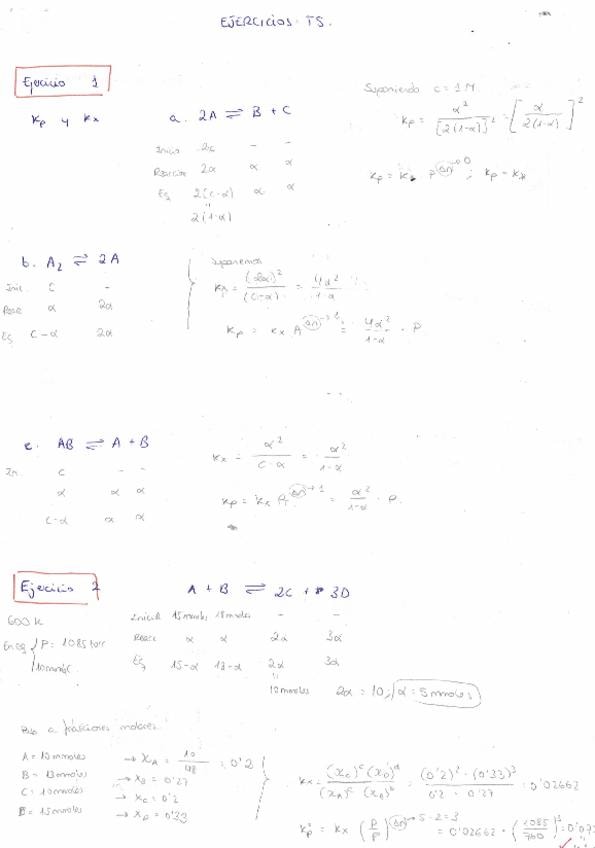 EJERCICIOS TS.
Ejercicio 1
Kp y Kx
a. 2A ⇌ B + C
Inicio 2c - -
Reacción 2α α α
Eq 2(c-α) α α
2(1-α)
Suponiendo c = 1M
Kp = α² / [2(1-α)]² = [α / 2(1-α)]²
Kp = Kx P^Δn→0 ; Kp = Kx
b. A₂ ⇌ 2A
Inic. c -
Reacc α 2α
Eq c-α 2α
Suponemos
Kx = (2α)² / (c-α) = 4α² / 1-α
Kp = Kx P^Δn→1 = 4α² / 1-α · P
c. AB ⇌ A + B
In. c - -
α α α
c-α α α
Kx = α² / c-α = α² / 1-α
Kp = Kx P^Δn→1 = α² / 1-α · P.
Ejercicio 2
A + B ⇌ 2C + 3D
600 K
En eq { P = 1085 torr
10 mmol C
Inicial 15 mmoles 18 mmoles - -
Reacc α α 2α 3α
Eq 15-α 18-α 2α 3α
10 mmoles 2α = 10 ; α = 5 mmoles
Paso a fracciones molares
A = 10 mmoles → XA = 10 / 48 = 0'2
B = 13 mmoles → XB = 0'27
C = 10 mmoles → XC = 0'2
D = 15 mmoles → XD = 0'33
Kx = (XC)^c (XD)^d / (XA)^a (XB)^b = (0'2)² · (0'33)³ / 0'2 · 0'27 = 0'02662
Kp° = Kx (P/P)^Δn→5-2=3 = 0'02662 · (1085/760)³ = 0'07